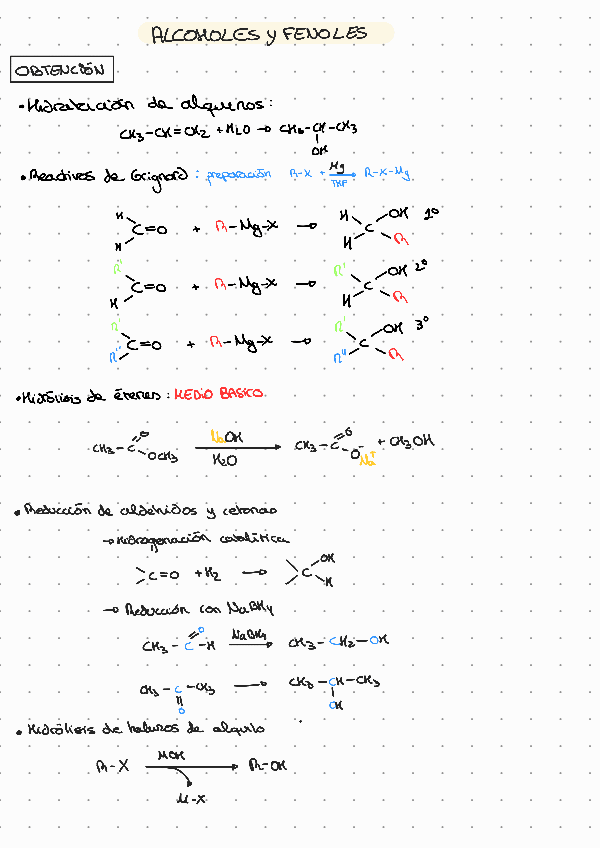 ALCOHOLES y FENOLES
OBTENCIÓN
• Hidratación de alquenos:
CH3-CH=CH2 + H2O → CH3-CH-CH3
OH
• Reactivos de Grignard: preparación R-X + Mg → R-X-Mg
THF
H
H C=O + R-Mg-X → H H C OH R 1º
R'
H C=O + R-Mg-X → R' H C OH R 2º
R'
R'' C=O + R-Mg-X → R' R'' C OH R 3º
• Hidrólisis de ésteres: MEDIO BASICO
CH3-C=O OCH3 NaOH → H2O CH3-C=O O⁻ Na⁺ + CH3OH
• Reducción de aldehidos y cetonas
→ Hidrogenación catalítica
C=O + H2 → C OH H
→ Reducción con NaBH4
CH3-C=O-H NaBH4 → CH3-CH2-OH
CH3-C-CH3 → CH3-CH-CH3
O OH
• Hidrólisis de haluros de alquilo
R-X MOH → R-OH
M-X